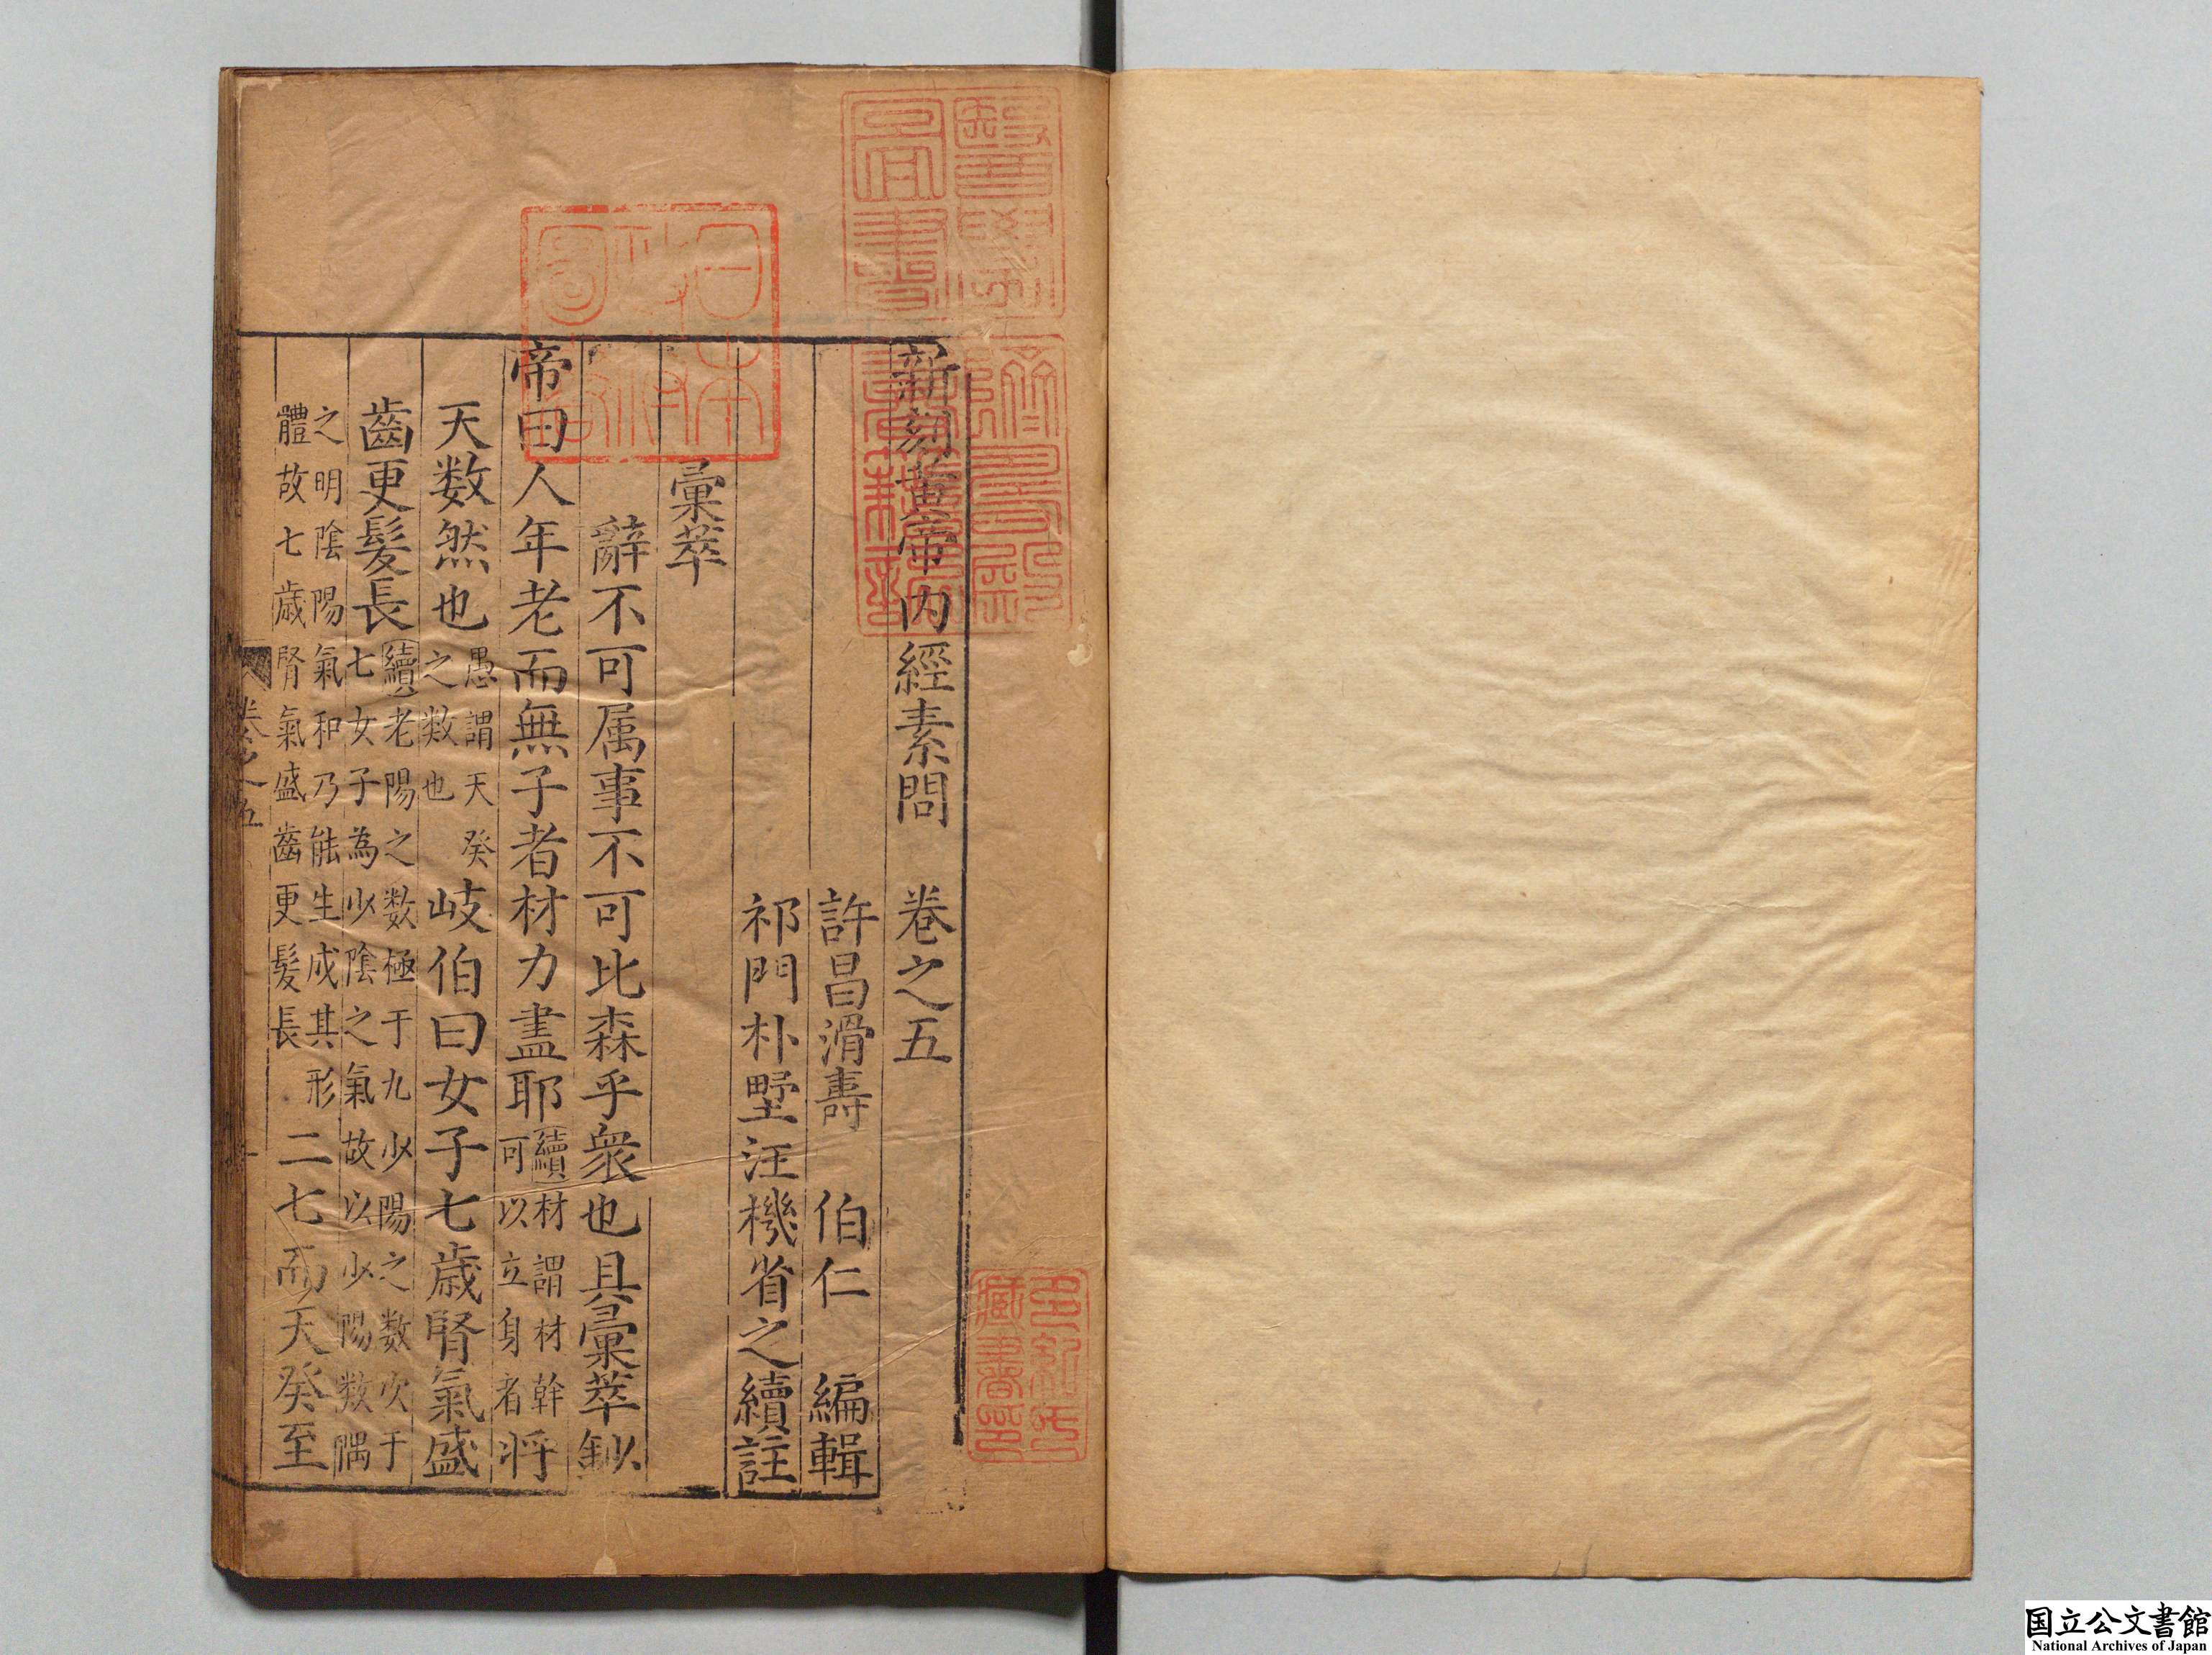 新刻黃帝內經素問　卷之五
許昌滑壽　伯仁　編輯
祁門朴墅汪機省之續註
彙萃
辭不可属事不可比森乎衆也具彙萃鈔
帝曰人年老而無子者材力盡耶續材謂材幹可以立身者将
天数然也愚謂天癸之数也岐伯曰女子七歲腎氣盛
齒更髮長續老陽之数極于九少陽之数次于七女子為少陰之氣故以少陽数偶
之明陰陽氣和乃能生成其形體故七歲腎氣盛齒更髮長二七而天癸至
卷之五
一
日本政府圖書
醫學
躋壽館
書
多紀氏藏書印
国立公文書館
National Archives of Japan